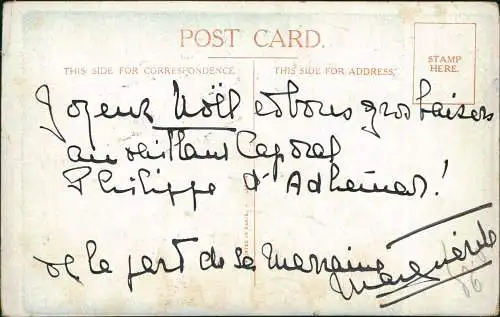 POST CARD.
STAMP
HERE.
THIS SIDE FOR CORRESPONDENCE.
THIS SIDE FOR ADDRESS.
Joyeux Noël et bons gros baisers
au vaillant Caporal
Philippe d'Adhémar!
de la part de sa marraine
Marguerite
86